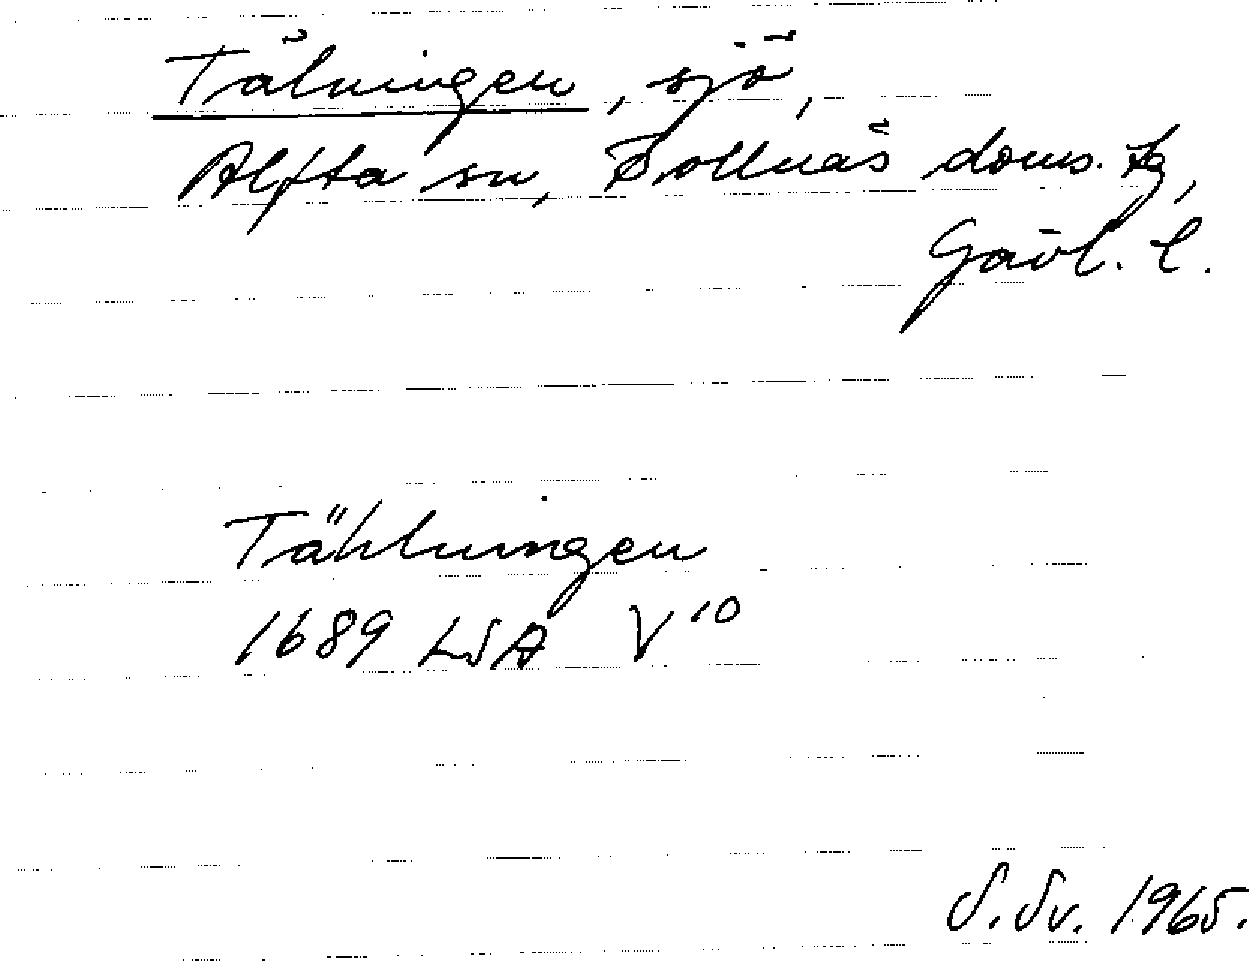 Tälningen, sjö,
Alfta sn, Bollnäs doms. tg,
Gävl. l.
Tählningen
1689 LSA V10
S. Sv. 1965.